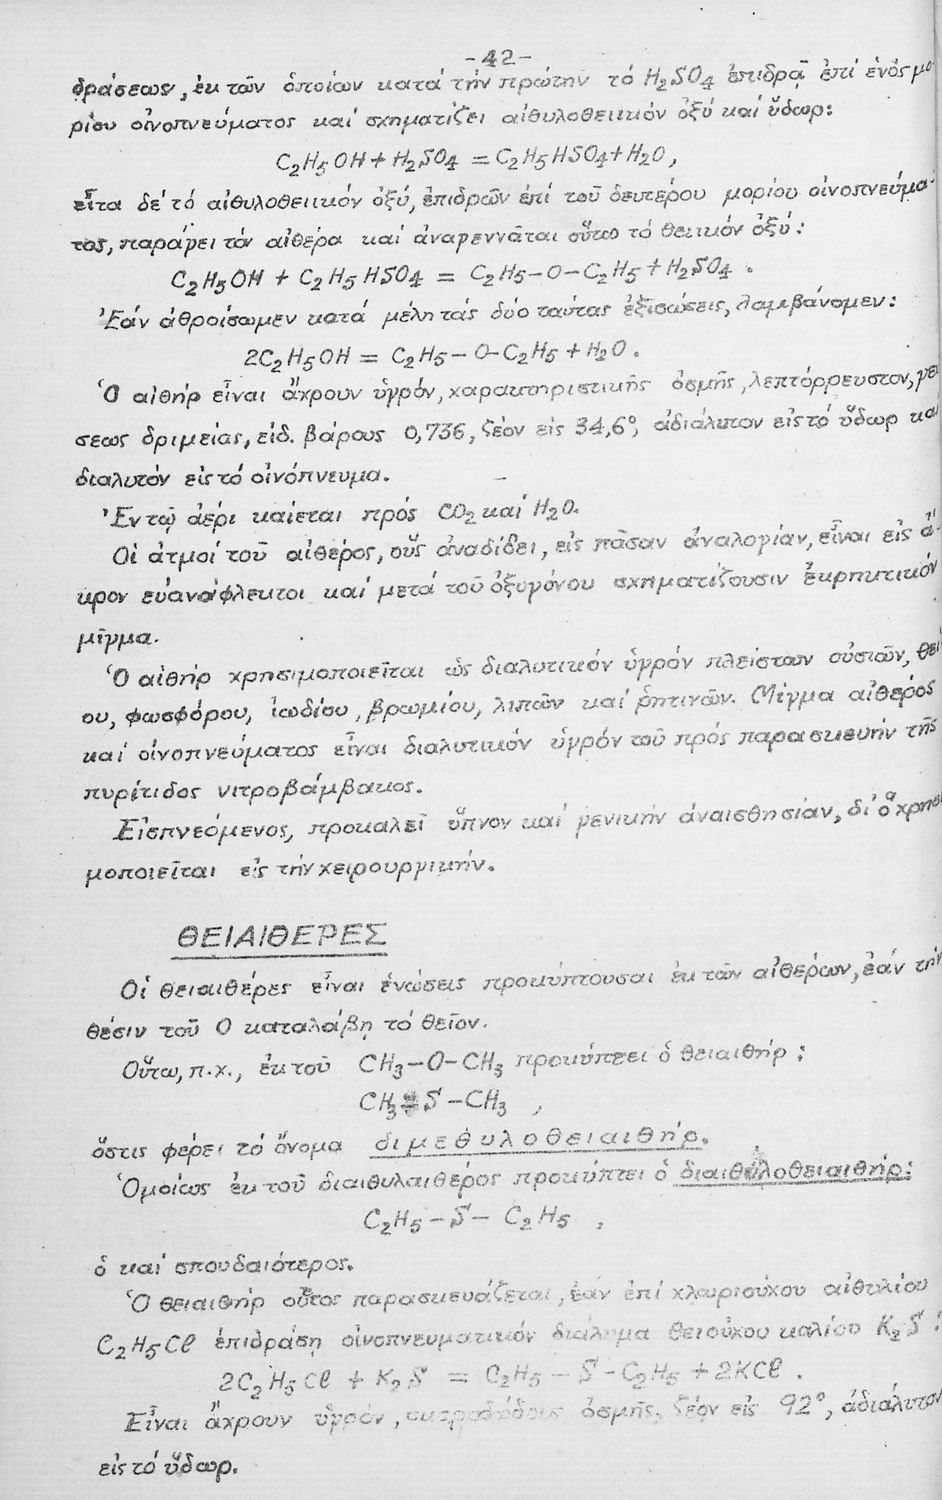 -42-
δράσεως, ἐκ τῶν ὁποίων κατά τήν πρώτην τό H₂SO₄ ἐπιδρᾷ ἐπί ἑνός μο-
ρίου οἰνοπνεύματος καί σχηματίζει αἰθυλοθειικόν ὀξύ καί ὕδωρ:
C₂H₅OH + H₂SO₄ = C₂H₅HSO₄ + H₂O,
εἶτα δέ τό αἰθυλοθειικόν ὀξύ, ἐπιδρῶν ἐπί τοῦ δευτέρου μορίου οἰνοπνεύμα-
τος, παράγει τόν αἰθέρα καί ἀναγεννᾶται οὕτω τό θειικόν ὀξύ:
C₂H₅OH + C₂H₅HSO₄ = C₂H₅-O-C₂H₅ + H₂SO₄.
Ἐάν ἀθροίσωμεν κατά μέλη τάς δύο ταύτας ἐξισώσεις, λαμβάνομεν:
2C₂H₅OH = C₂H₅-O-C₂H₅ + H₂O.
Ὁ αἰθήρ εἶναι ἄχρουν ὑγρόν, χαρακτηριστικῆς ὀσμῆς, λεπτόρρευστον, γεύ
σεως δριμείας, εἰδ. βάρους 0,736, ζέον εἰς 34,6°, ἀδιάλυτον εἰς τό ὕδωρ καί
διαλυτόν εἰς τό οἰνόπνευμα.
Ἐν τῷ ἀέρι καίεται πρός CO₂ καί H₂O.
Οἱ ἀτμοί τοῦ αἰθέρος, οὕς ἀναδίδει, εἰς πᾶσαν ἀναλογίαν, εἶναι εἰς ἄ-
κρον εὐανάφλεκτοι καί μετά τοῦ ὀξυγόνου σχηματίζουσιν ἐκρηκτικόν
μῖγμα.
Ὁ αἰθήρ χρησιμοποιεῖται ὡς διαλυτικόν ὑγρόν πλείστων οὐσιῶν, θεί
ου, φωσφόρου, ἰωδίου, βρωμίου, λιπῶν καί ῥητινῶν. Μῖγμα αἰθέρος
καί οἰνοπνεύματος εἶναι διαλυτικόν ὑγρόν τοῦ πρός παρασκευήν τῆς
πυρίτιδος νιτροβάμβακος.
Εἰσπνεόμενος, προκαλεῖ ὕπνον καί γενικήν ἀναισθησίαν, δι' ὅ χρησι
μοποιεῖται εἰς τήν χειρουργικήν.
ΘΕΙΑΙΘΕΡΕΣ
Οἱ θειαιθέρες εἶναι ἑνώσεις προκύπτουσαι ἐκ τῶν αἰθέρων, ἐάν τήν
θέσιν τοῦ Ο καταλάβῃ τό θεῖον.
Οὕτω, π.χ., ἐκ τοῦ CH₃-O-CH₃ προκύπτει ὁ θειαιθήρ:
CH₃-S-CH₃,
ὅστις φέρει τό ὄνομα διμεθυλοθειαιθήρ.
Ὁμοίως ἐκ τοῦ διαιθυλαιθέρος προκύπτει ὁ διαιθυλοθειαιθήρ:
C₂H₅-S-C₂H₅,
ὁ καί σπουδαιότερος.
Ὁ θειαιθήρ οὗτος παρασκευάζεται, ἐάν ἐπί χλωριούχου αἰθυλίου
C₂H₅Cl ἐπιδράσῃ οἰνοπνευματικόν διάλυμα θειούχου καλίου K₂S:
2C₂H₅Cl + K₂S = C₂H₅-S-C₂H₅ + 2KCl.
Εἶναι ἄχρουν ὑγρόν, ὀσμῆς, ζέον εἰς 92°, ἀδιάλυτον
εἰς τό ὕδωρ.